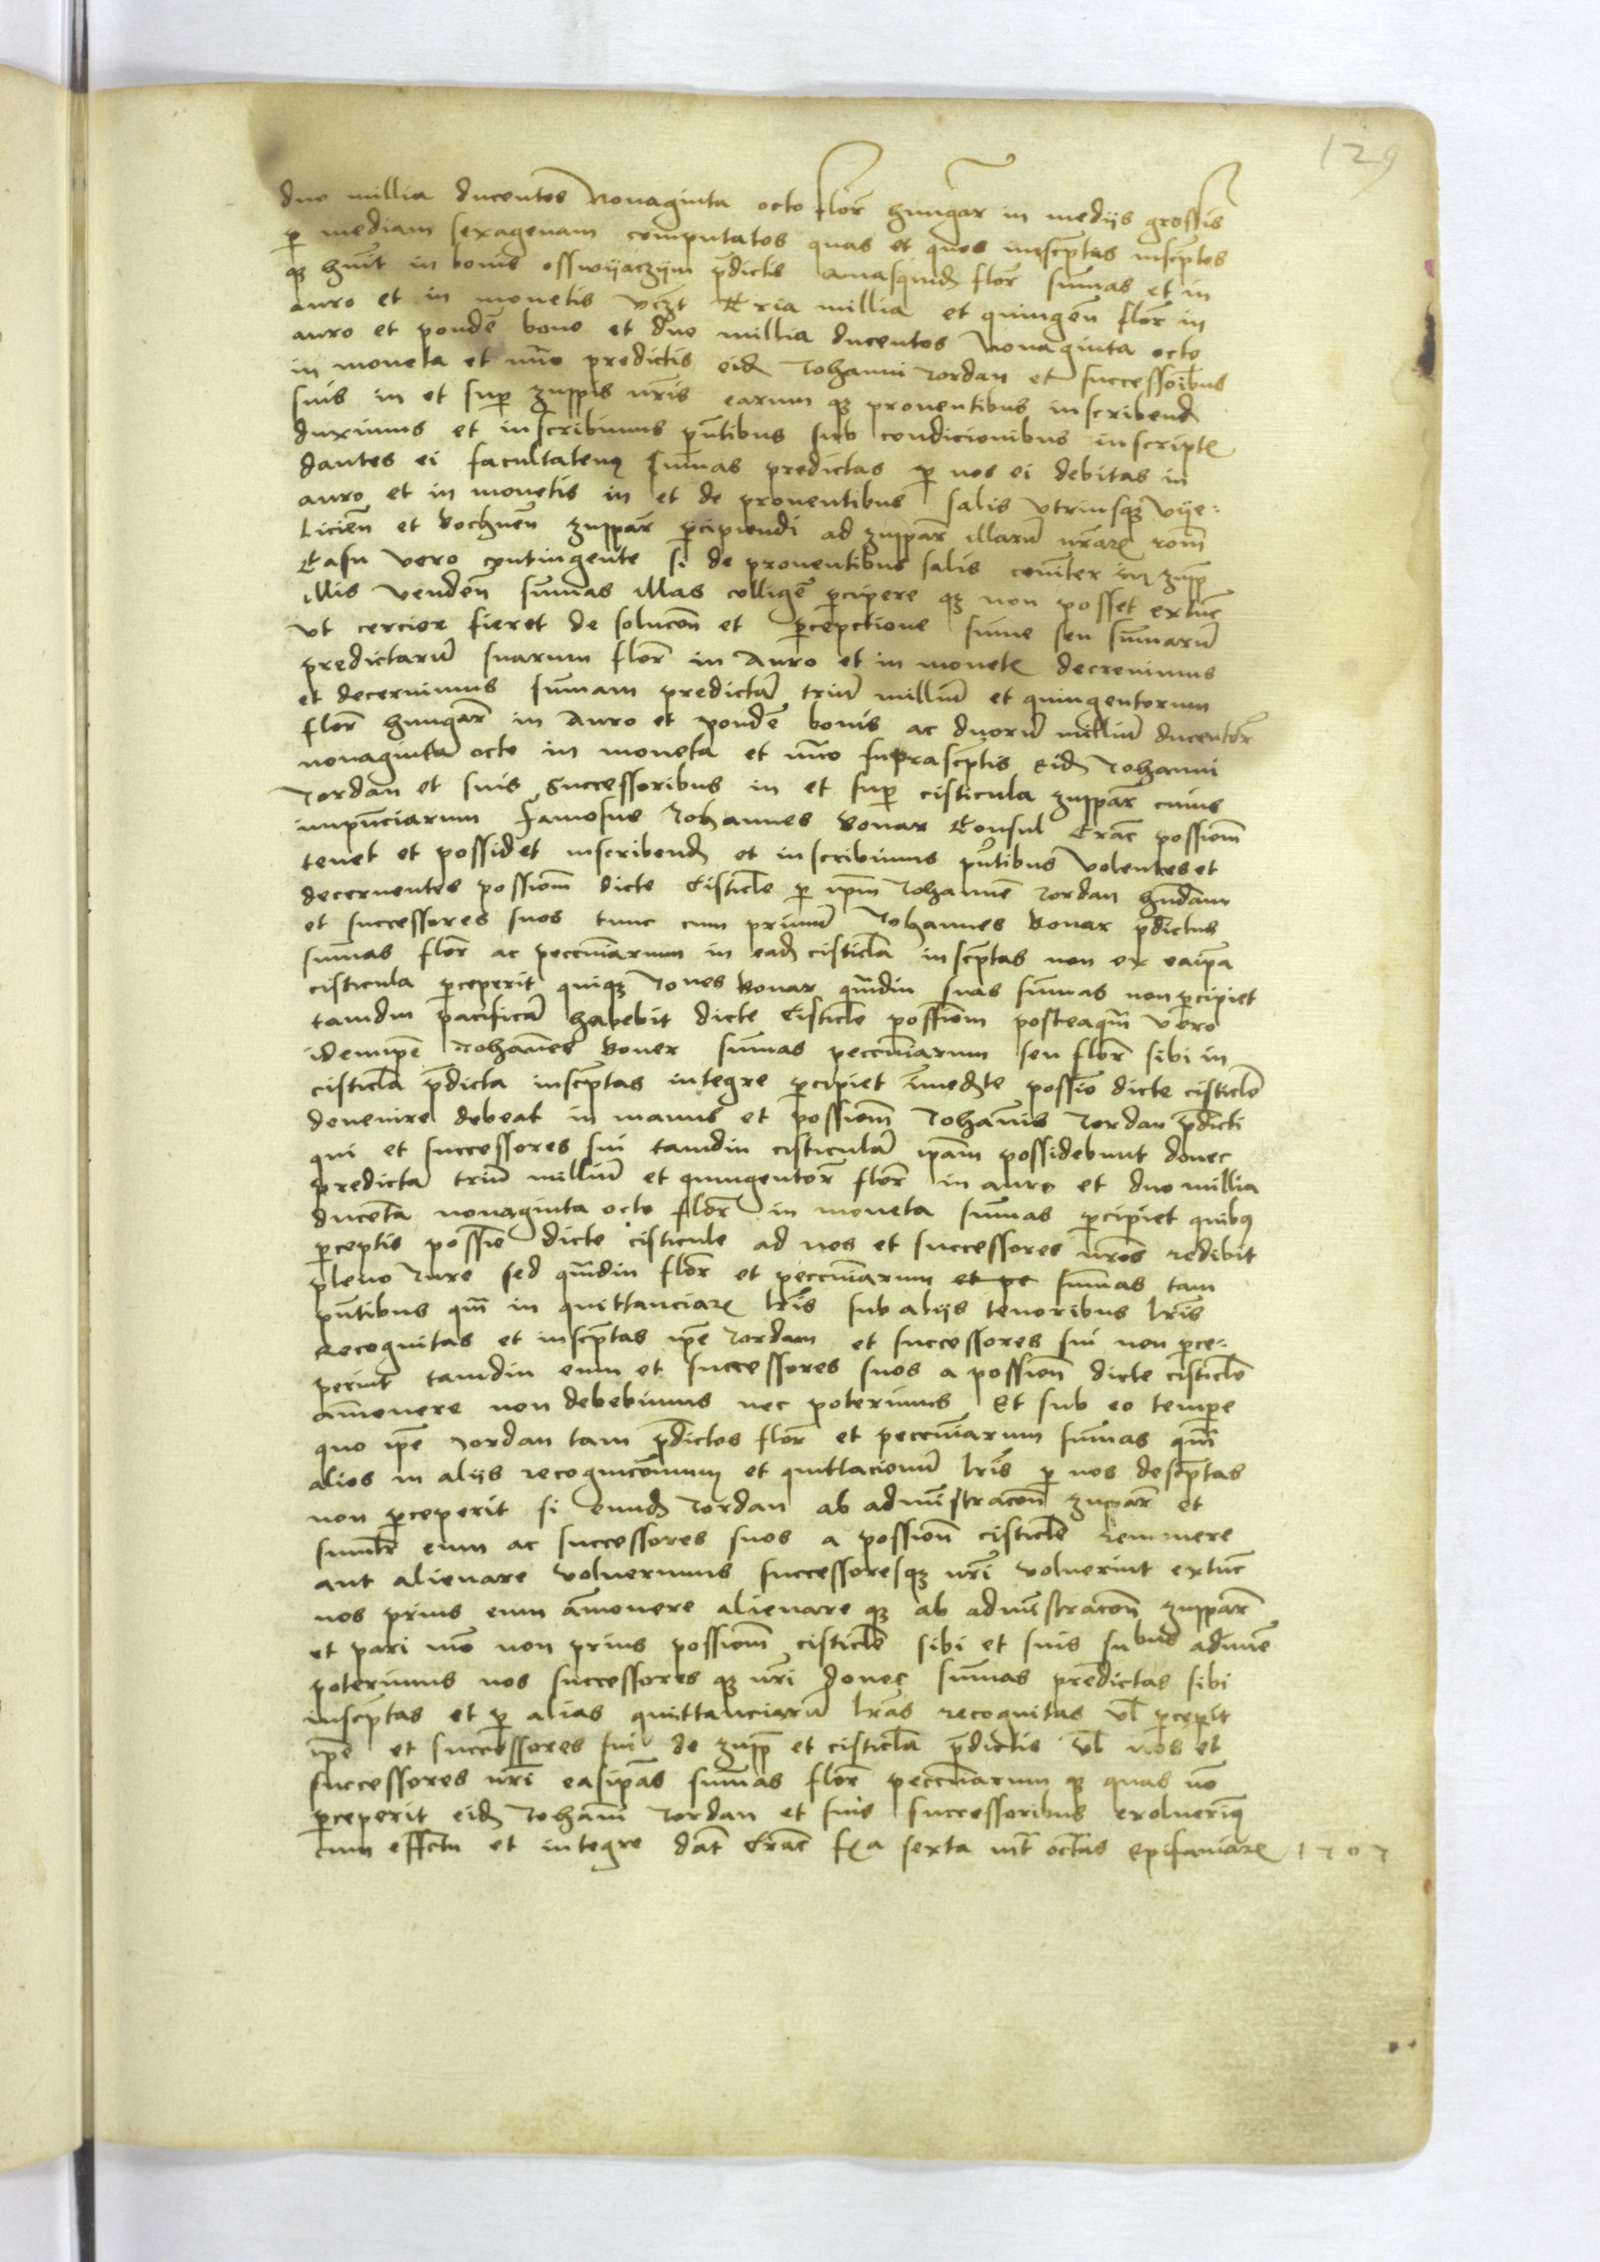 129
duo millia ducentos Nonaginta octo flor hungar in medijs grossis
p mediam sexagenam computatos quas et quos inscptas inscptos
q huit in bonis osswyaczijm pdictis quasquid flor sumas et in
auro et in monetis vczt tria millia et quingen flor in
auro et ponde bono et duo millia ducentos Nonaginta octo
in moneta et nuo predictis eid Johanni Jordan et successoribus
suis in et sup zuppis nris earum q prouentibus inscribend
duximus et inscribimus pntibus sub condicionibus inscript
dantes ei facultatem sumas predictas p nos ei debitas in
auro et in monetis in et de prouentibus salis vtriusq Vije=
licien et Bochnen zuppar pcipiendi ad zuppar illaru nrar rom
Casu vero contingente si de prouentibus salis comiter in zupp
illis venden sumas illas collige pcipere q non posset extuc
vt cercior fieret de solucon et pcepctione sume seu sumaru
predictaru suarum flor in Auro et in monet decreuimus
et decernimus sumam predicta triu milliu et quingentorum
flor hungar in Auro et ponde bonis ac duoru milliu ducentor
nonaginta octo in moneta et nuo suprascptis eid Johanni
Jordan et suis Successoribus in et sup cisticula zuppar cuius
famosus Johannes Bonar Consul Crac possiom
tenet et possidet inscribend et inscribimus pntibus volentes et
decernentes possiom dicte Cisticle p ipm Johanne Jordan hndam
et successores suos tunc cum primu Johannes Bonar pdictus
sumas flor ac peccuniarum in ead cisticla inscptas non ex eaipa
cisticula pceperit quiq Jones Bonar qmdiu suas sumas non pcipiet
tamdiu pacifica habebit dicte Cisticle possiom posteaqm vero
idemipe Johanes Boner sumas peccuniarum seu flor sibi in
cisticla pdicta inscptas integre pcipiet imedte possio dicte cisticle
deuenire debeat in manus et possiom Johanis Jordan pdicti
qui et successores sui tamdiu cisticula ipam possidebunt donec
predicta triu milliu et quingentor flor in auro et duo millia
ducenta nonaginta octo flor in moneta sumas pcipiet quibus
pceptis possio dicte cisticule ad nos et successores nros redibit
pleno Jure sed qmdiu flor et peccuniarum et pe sumas tam
pntibus qm in quittanciar lris sub alijs tenoribus lris
recognitas et inscptas ipe Jordam et successores sui non pce=
perint tamdiu eum et successores suos a possion dicte cisticle
amouere non debebimus nec poterimus Et sub eo tempe
quo ipe Jordan tam pdictos flor et peccuniarum sumas qm
alios in alijs recognicionum et quittacionu lris p nos descptas
non pceperit si eund Jordan ab administracon zupar et
similr eum ac successores suos a possion cisticle remouere
aut alienare voluerimus successoresq nri voluerint extuc
nos prius eum amouere alienare q ab administracon zuppar
et pari mo non prius possiom cisticle sibi et suis subus adime
poterimus nos successores q nri donec sumas predictas sibi
inscptas et p alias quittanciaru lras recognitas vl pcepit
ipe et successores sui de zupp et cisticla pdictis vl nos et
successores nri easipas sumas flor peccuniarum q quas no
pceperit eid Johani Jordan et suis successoribus exoluerimus
cum effctu et integre dat Crac fia sexta inf octas Epifaniar 1507